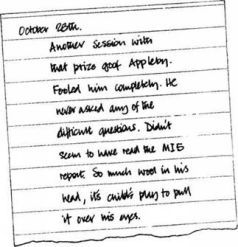 October 28th.
Another session with
that prize goof Appleby.
Fooled him completely. He
never asked any of the
difficult questions. Didn't
seem to have read the MI5
report. So much wool in his
head, it's child's play to pull
it over his eyes.